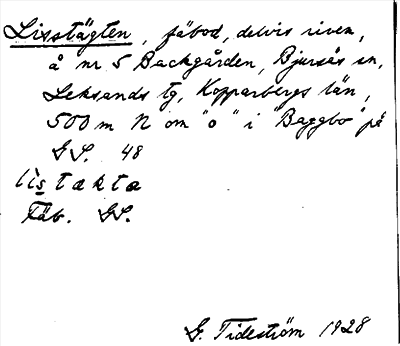 Lisstägten, fäbod, delvis riven,
å nr 5 Backgården, Bjursås sn,
Leksands tg, Kopparbergs län,
500 m N om "o" i "Baggbo" på
GS. 48
lìstækta
Fäb. GS.
G. Tideström 1928